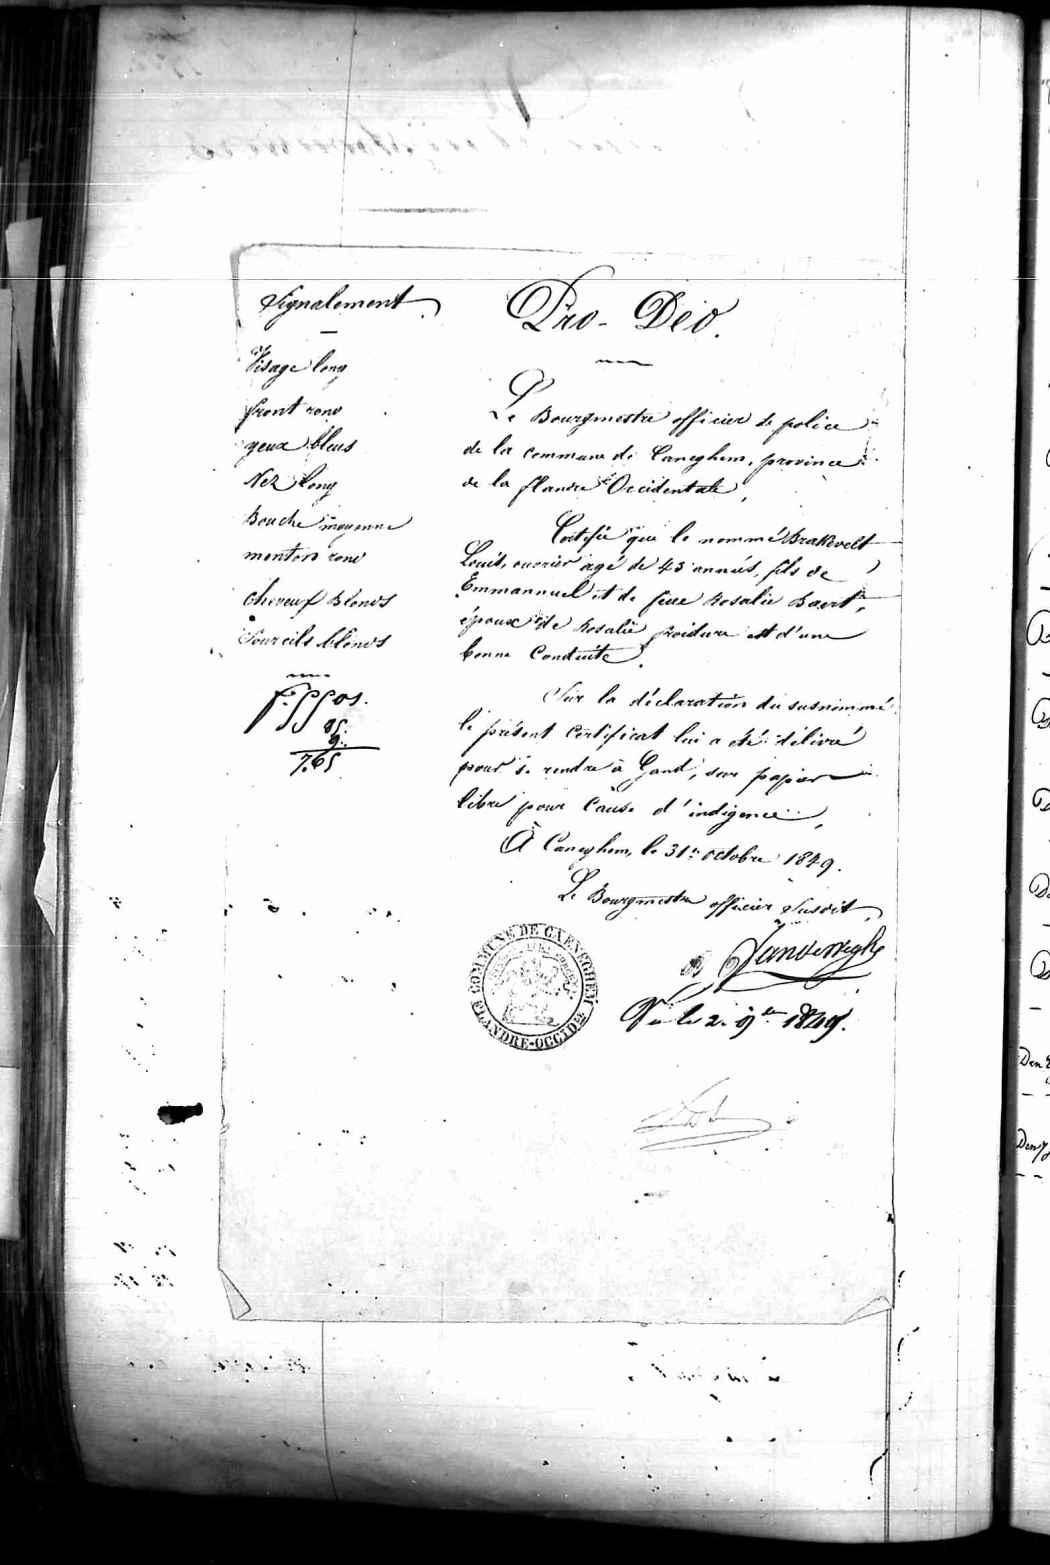 Signalement
Visage long
front rond
yeux bleus
Nez long
Bouche moyenne
menton rond
cheveux Blonds
Sourcils blonds
05.
85.
9.
7.65
Pro-Deo.
Le Bourgmestre officier de police
de la commune de Caneghem, province
de la flandre Occidentale,
Certifie que le nommé Brakevelt
Louis, ouvrier agé de 43 années, fils de
Emmannuel et de feue Rosalie Baert,
époux de Rosalie froidure est d'une
bonne Conduite.
Sur la déclaration du susnommé
le présent certificat lui a été délivré
pour se rendre à Gand, sur papier
libre pour Cause d'indigence,
À Caneghem, le 31 octobre 1849.
Le Bourgmestre officier Susdit,
Vanderweghe
Vu le 2. 9bre 1849.
COMMUNE DE CAENEGHEM
FLANDRE-OCCIDle
Den
Den 7